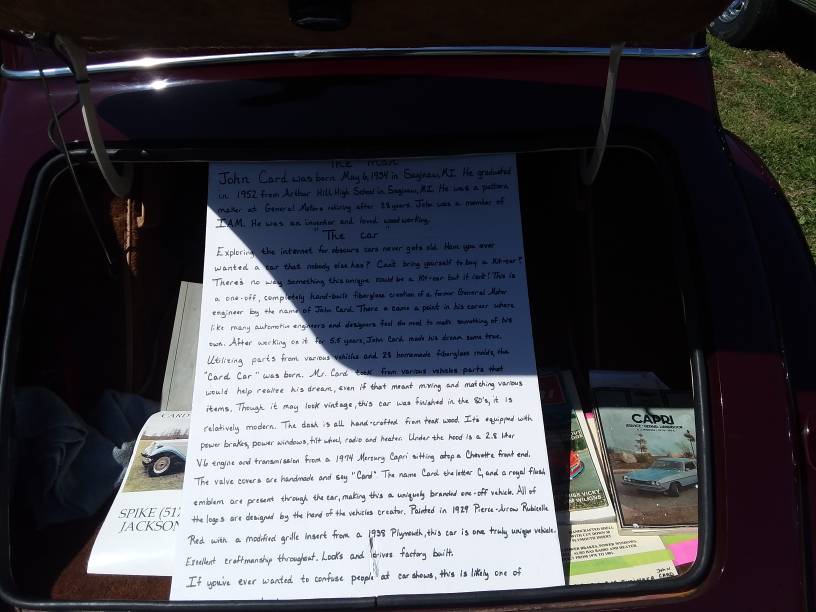 "The Man"
John Card was born May 6, 1934 in Saginaw, MI. He graduated
in 1952 from Arthur Hill High School in Saginaw, MI. He was a pattern
maker at General Motors retiring after 28 years. John was a member of
I.AM. He was an inventor and loved woodworking.
"The car"
Exploring the internet for obscure cars never gets old. Have you ever
wanted a car that nobody else has? Can't bring yourself to buy a kit-car?
There's no way something this unique could be a Kit-car but it isn't! This is
a one-off, completely hand-built fiberglass creation of a former General Motor
engineer by the name of John Card. There a came a point in his career where
like many automotive engineers and designers feel the need to make something of his
own. After working on it for 5.5 years, John Card made his dream come true.
Utilizing parts from various vehicles and 28 homemade fiberglass molds, the
"Card Car" was born. Mr. Card took from various vehicles parts that
would help realize his dream, even if that meant mixing and matching various
items. Though it may look vintage, this car was finished in the 80's, it is
relatively modern. The dash is all hand-crafted from teak wood. It's equipped with
power brakes, power windows, tilt wheel, radio and heater. Under the hood is a 2.8 liter
V6 engine and transmission from a 1974 Mercury Capri sitting atop a Chevette front end.
The valve covers are handmade and say "Card" The name Card the letter C, and a royal flush
emblem are present through the car, making this a uniquely branded one-off vehicle. All of
the logos are designed by the hand of the vehicles creator. Painted in 1929 Pierce-Arrow Rubicelle
Red with a modified grille insert from a 1938 Plymouth, this car is one truly unique vehicle.
Excellent craftmanship throughout. Looks and drives factory built.
If you've ever wanted to confuse people at car shows, this is likely one of
CARD
SPIKE (517
JACKSON
CAPRI
VICKY
WILKINS
HANDCRAFTED SHELL
PLYMOUTH INSERT
POWER BRAKES, POWER WINDOWS,
ALSO HAS RADIO AND HEATER